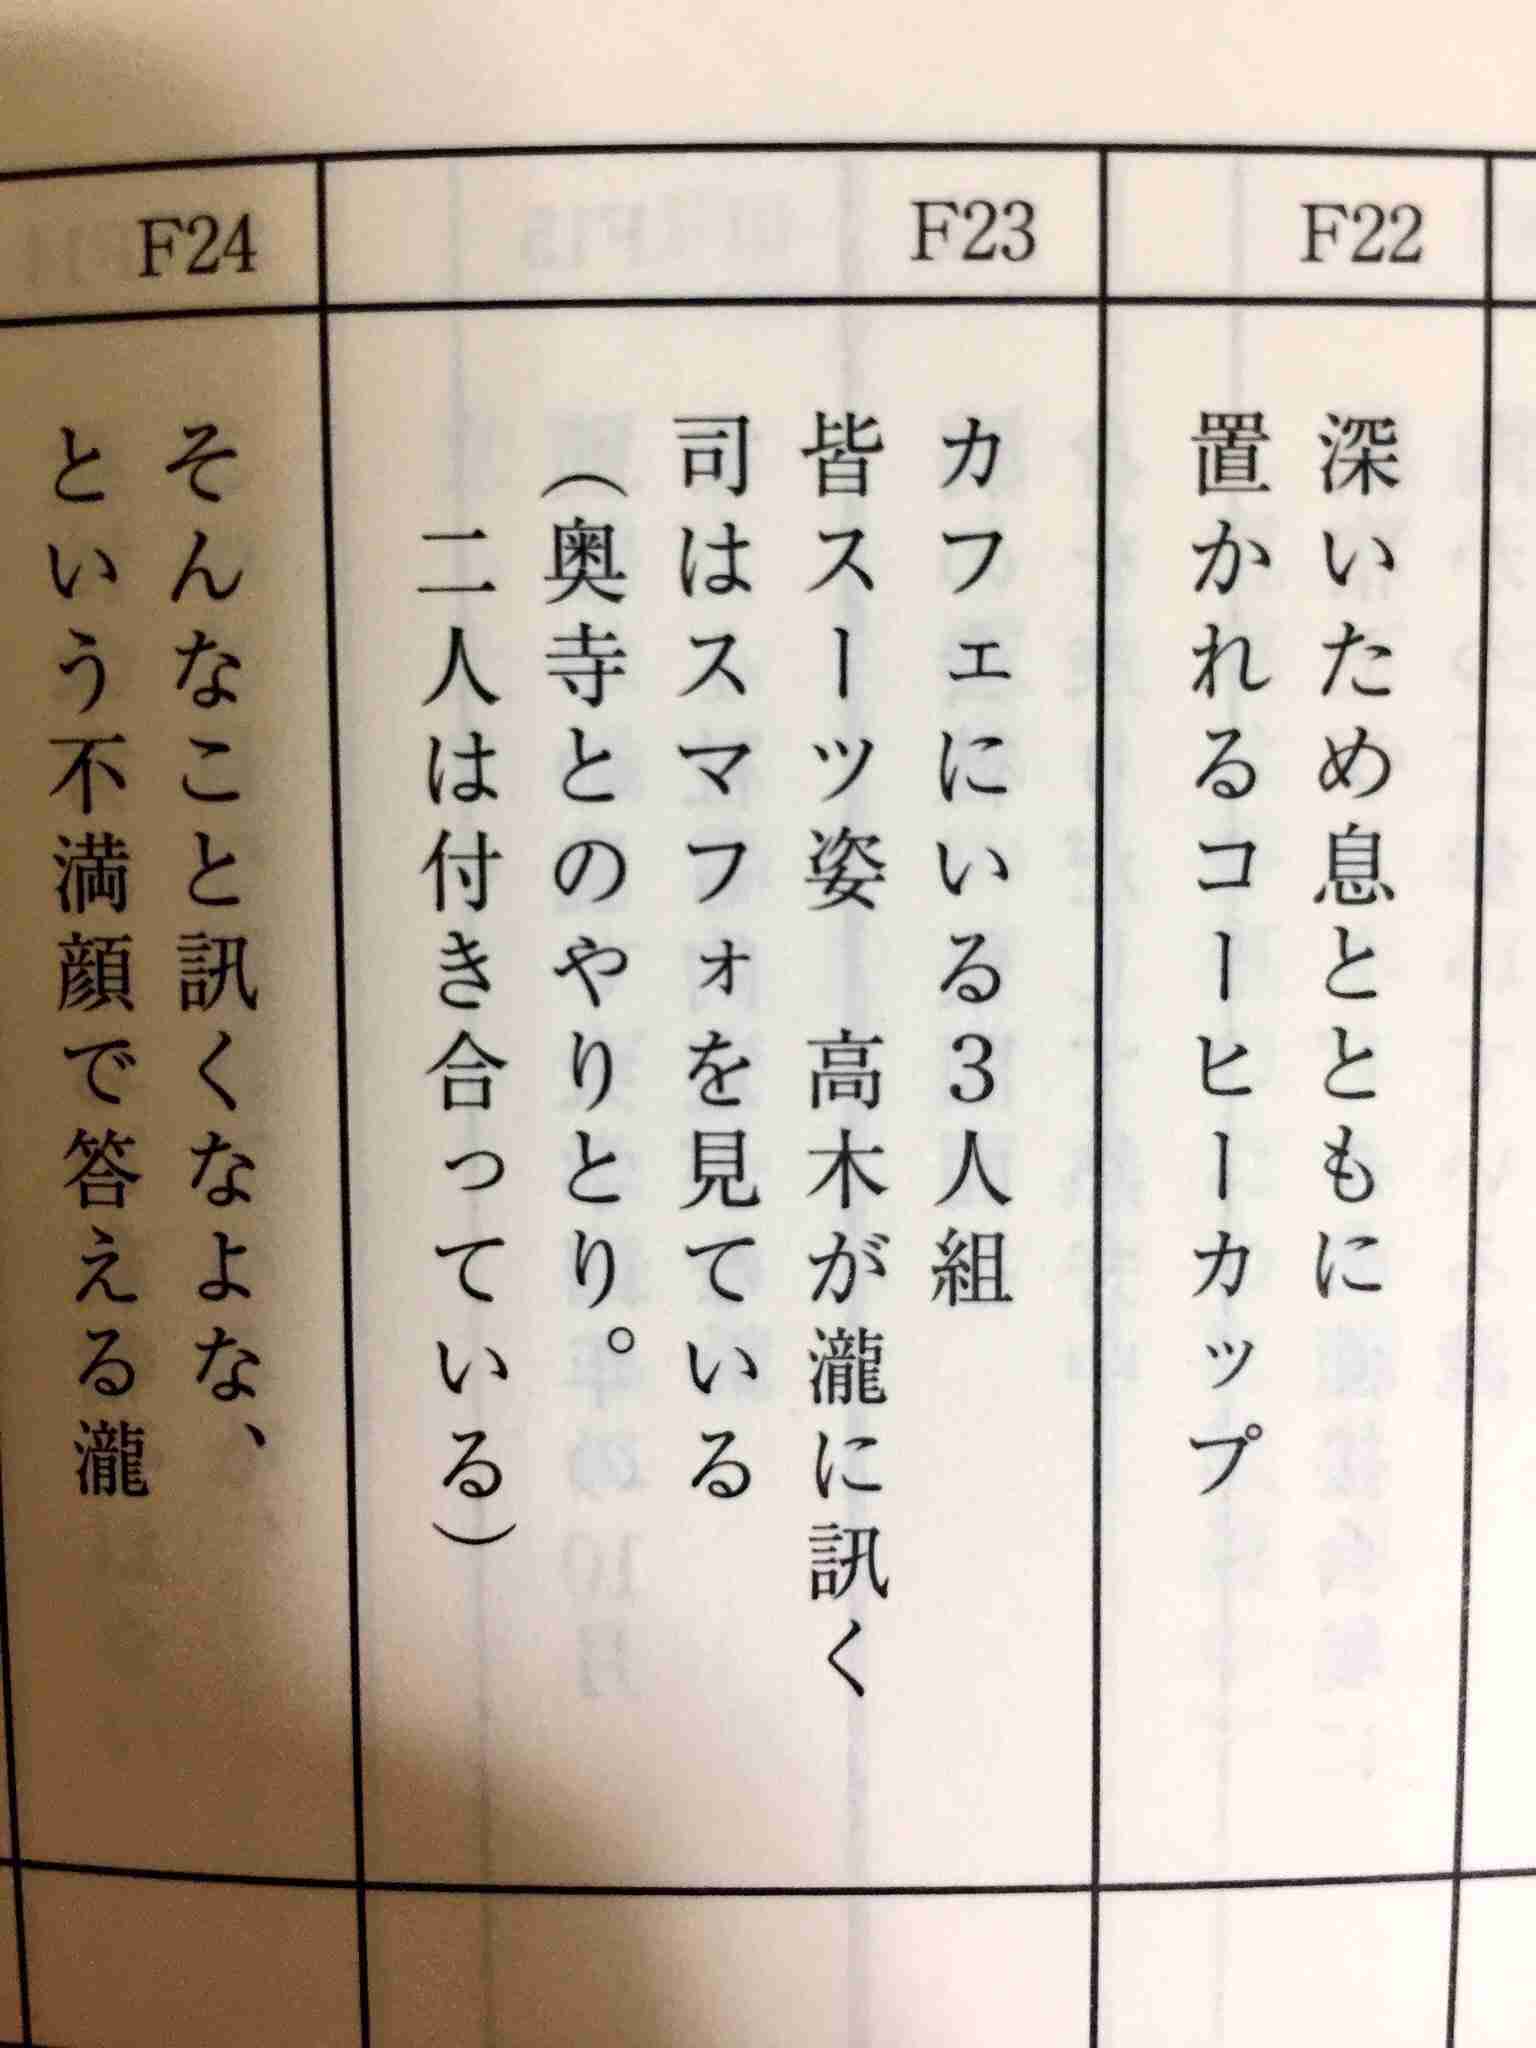 F22
深いため息とともに
置かれるコーヒーカップ
F23
カフェにいる3人組
皆スーツ姿　高木が瀧に訊く
司はスマフォを見ている
（奥寺とのやりとり。
二人は付き合っている）
F24
そんなこと訊くなよな、
という不満顔で答える瀧